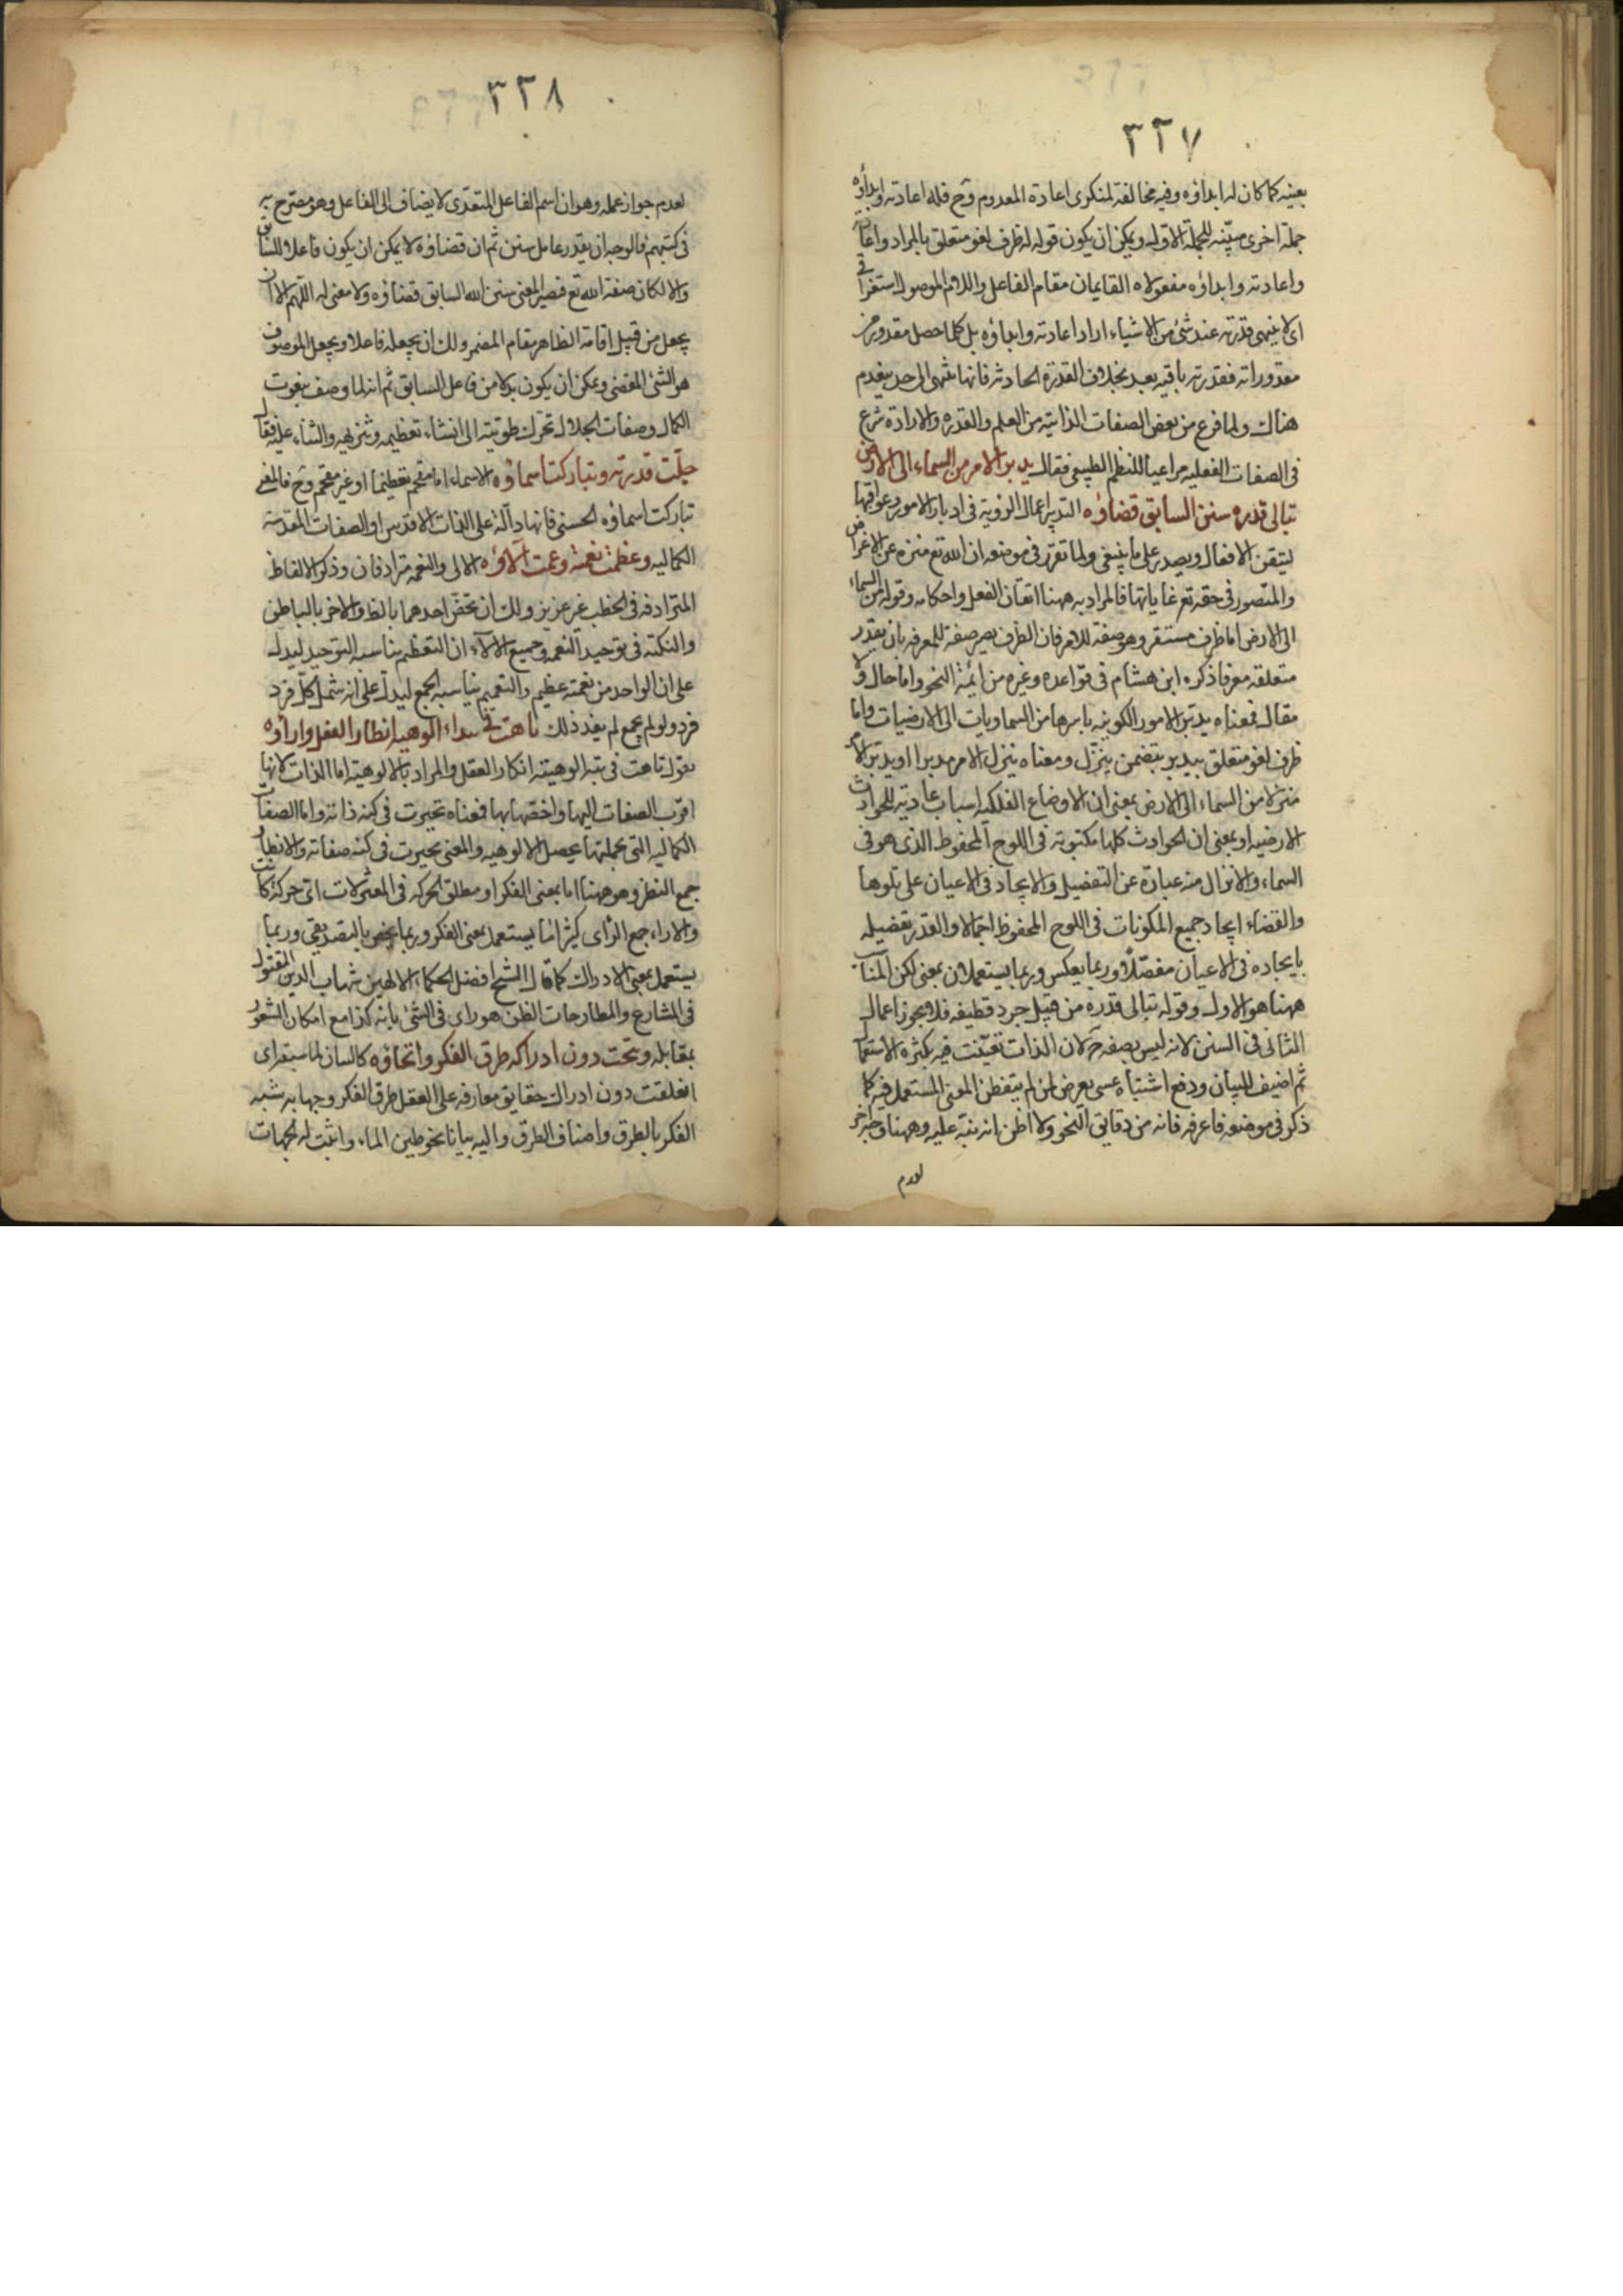 ٣٢٧
بعينه كما كان له ابداؤه وفيه مخالفة لمنكرى اعادة المعدوم وح فله اعادته وابداؤه
جملة اخرى مبيّنه للجملة الاولى ويمكن ان يكون قوله له ظرف لغو متعلق بالمراد واعاد
واعادته وابداؤه مفعولاه القايمان مقام الفاعل واللام الموصول استغراق
اى لا ينتهى قدرته عند شئ من الاشياء اراد اعادته وابداؤه بل كلما حصل مقدور من
مقدوراته فقدرته باقيه بعد بخلاف القدرة الحادثه فانها تنتهى الى حد ينعدم
هناك ولما فرغ من بعض الصفات الذاتية من العلم والقدرة والارادة شرع
فى الصفات الفعليه مراعيا للنظم الطبيعى فقال يدبر الامر من السماء الى الارض
تبالى قدره سنن السابق قضاؤه التدبير اعمال الروية فى ادبار الامور وعواقبها
ليتقن الافعال ويصدر على ما ينبغى ولما تقرر فى موضعه ان الله تع منزه عن الاغراض
والمتصور فى حقه تع غاياتها فالمراد به ههنا اتقان الفعل واحكامه وقوله من السماء
الى الارض اما ظرف مستقر وهو صفة للامر فان الظرف يصير صفة للمعرفه بان يقدر
متعلقه معرفا ذكره ابن هشام فى قواعده وغيره من ائمة النحو واما حال ولا
مقال فمعناه يدبر الامور الكونيه باسرها من السماويات الى الارضيات واما
ظرف لغو متعلق بيدبر بتضمن ينزّل ومعناه ينزل الامر مدبرا او يدبر الامر
منزلا من السماء الى الارض بمعنى ان الاوضاع الفلكيه اسباب عادية للحوادث
الارضيه او بمعنى ان الحوادث كلها مكتوبة فى اللوح المحفوظ الذى هو فى
السماء والانزال منه عبارة عن التفضيل والايجاد فى الاعيان على تلوها
والقضاء ايجاد جميع المكونات فى اللوح المحفوظ اجمالا والقدر تفضيله
بايجاده فى الاعيان مفصّلا وربما يعكس وربما يستعملان بمعنى لكن المناسب
ههنا هو الاول وقوله تبالى قدره من قبيل جرد قطيفه فلا يجوز اعمال
الثانى فى السنن لانه ليس بصفه ح لان الذات تعيّنت فيه بكثرة الاستعمال
ثم اضيف للبيان ودفع اشتباه عسى يعرض لمن لم يتفطن المعنى المستعمل فيه كما
ذكر فى موضعه فاعرفه فانه من دقايق النحو ولا اظن انه نبّه عليه وههنا وجه اخر
لعدم
٣٢٨
لعدم جواز عمله وهو ان اسم الفاعل المتعدّى لا يضاف الى الفاعل وهو مصرح به
فى كتبهم فالوجه ان يقدر عامل سنن ثم ان قضاؤه لا يمكن ان يكون فاعلا للسابق
والا لكان صفة الله تع فيصير المعنى سنن الله السابق قضاؤه ولا معنى له اللهم الا ان
يجعل من قبيل اقامة الظاهر مقام المضمر ولك ان يجعله فاعلا ويجعل الموصوف
هو الشئ المقضى ويمكن ان يكون بدلا من فاعل السابق ثم انه لما وصف بنعوت
الكمال وصفات الجلال تحرّك طويته الى انشاء تعظيمه وتنزيهه والثناء عليه فقال
جلّت قدرته وتباركت اسماؤه الاسماء اما مقحم تعظيما او غير مقحم وح فالمعنى
تباركت اسماؤه الحسنى فانها دالّة على الذات الاقدس او الصفات المقدسة
الكماليه وعظمت نعمته وعمت آلاؤه الالى والنعمه مترادفان وذكر الالفاظ
المترادفه فى الخطب غير عزيز ولك ان تخصّ احدهما بالظ والاخر بالباطن
والنكته فى توحيد النعمه وجميع الالاء ان التعظيم يناسبه التوحيد ليدل
على ان الواحد من نعمته عظيم والتعميم يناسبه الجمع ليدلّ على انه شمل كلّ فرد
فرد ولو لم يجمع لم يفد ذلك تاهت فى بيداء الوهيه انظار العقل واراؤه
يقول تاهت فى تيه الوهيته انكار العقل والمراد بالالوهية اما الذات لانها
اقرب الصفات اليها واخصّها بها فمعناه تحيرت فى كنه ذاته واما الصفات
الكماليه التى بجملتها يحصل الالوهيه والمعنى تحيرت فى كنه صفاته والانظار
جمع النظر وهو ههنا اما بمعنى الفكر او مطلق الحركه فى المعقولات اى حركة كانت
والاراء جمع الرّاى كثيرا ما يستعمل بمعنى الفكر وربما يخص بالتصديقى وربما
يستعمل بمعنى الادراك كما قال الشيخ افضل الحكماء الالهين شهاب الدين المقتول
فى المشارع والمطارحات الظن هو راى فى الشئ بانه كذا مع امكان الشعور
بمقابله وتحت دون ادراكه طرق الفكر وانحاؤه كالسان لما سبقه اى
انغلقت دون ادراك حقايق معارفه على العقل طرق الفكر وجهاته شبه
الفكر بالطرق واضاف الطرق واليه بيانا نحو طين الماء واثبت له الجهات